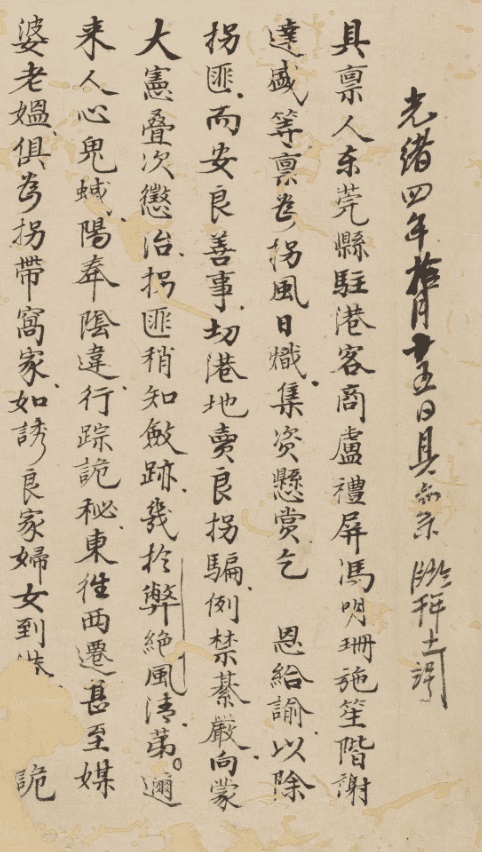 光緒四年拾月十五日具稟
具稟人东莞縣駐港客商盧禮屏馮明珊施笙階謝
達盛等稟為拐風日熾集资懸赏乞 恩給諭以除
拐匪而安良善事切港地賣良拐騙例禁綦嚴向蒙
大憲叠次懲治拐匪稍知斂跡幾扵弊絕風清苐邇
来人心鬼蜮陽奉陰違行踪詭秘東徃西遷甚至媒
婆老媼俱為拐帶窩家如誘良家婦女到 詭